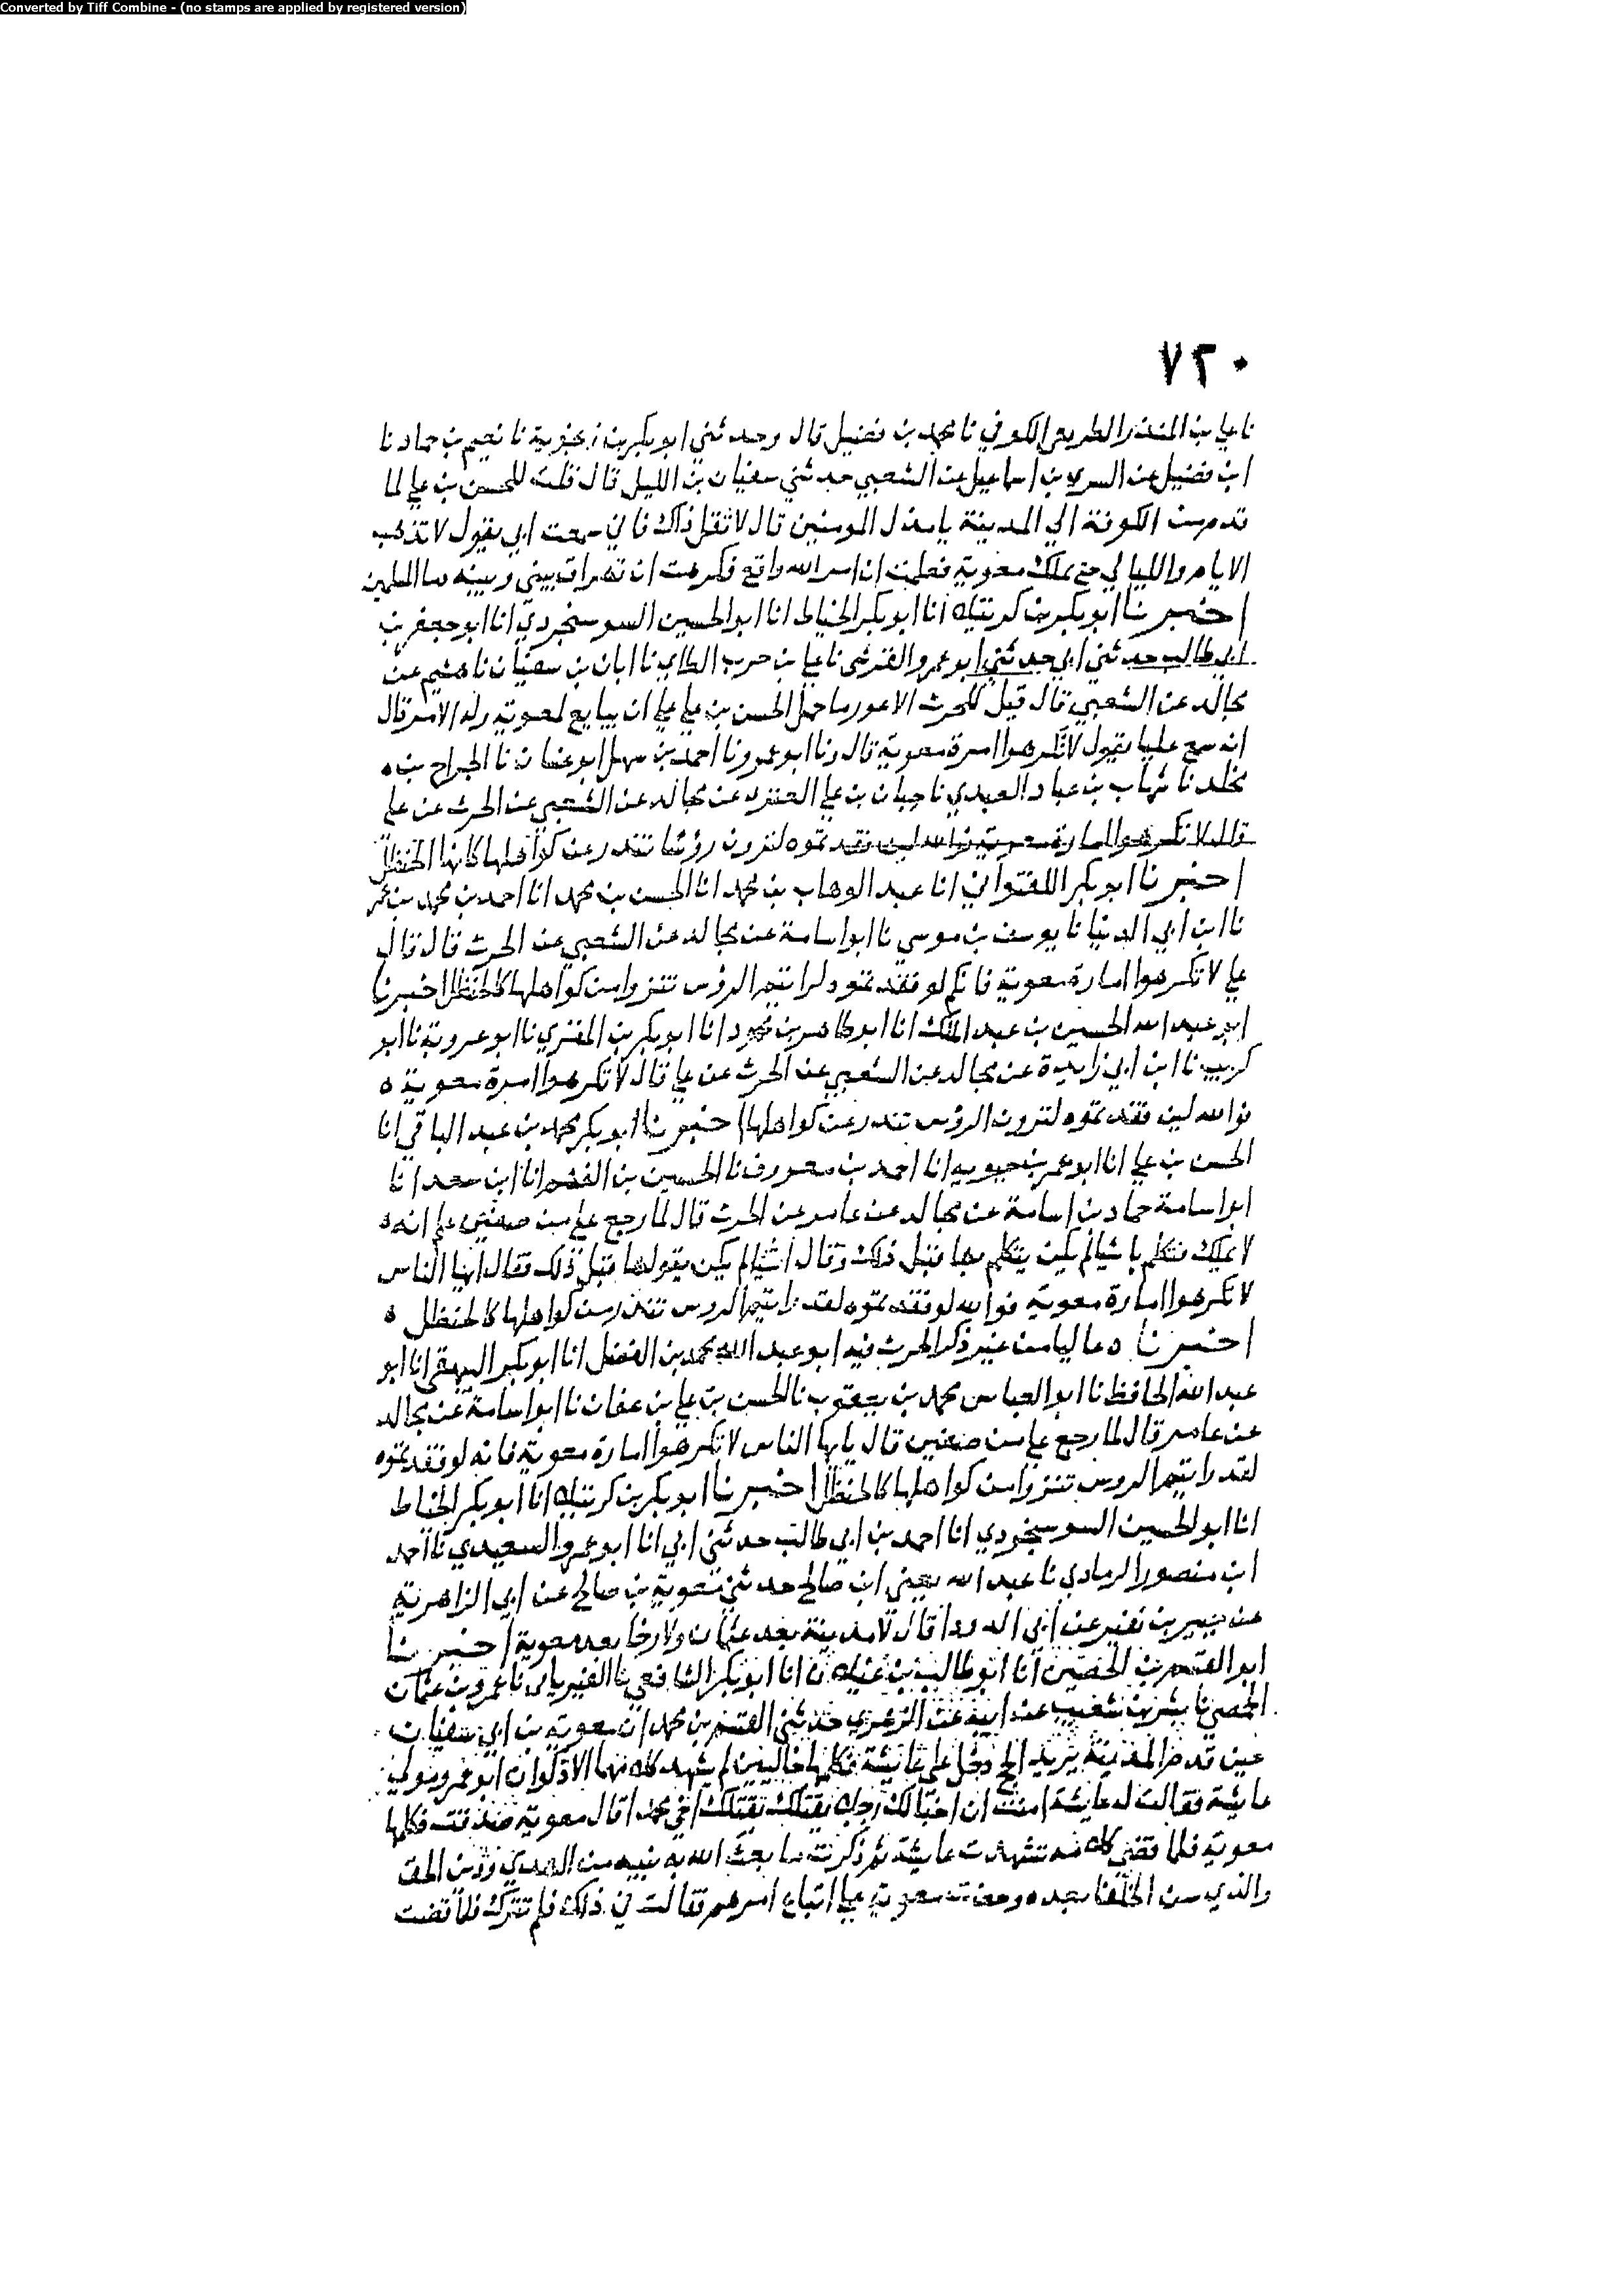 Converted by Tiff Combine - (no stamps are applied by registered version)
٧٢٠
نا علي بن المنذر الطريقي الكوفي نا محمد بن فضيل قال وحدثني ابو بكر بن زنجوية نا نعيم بن حماد نا
ابن فضيل عن السري بن اسماعيل عن الشعبي حدثني سفيان بن الليل قال قلت للحسن بن علي لما
قدم من الكوفة الى المدينة يا مذل المومنين قال لا تقل ذاك فاني سمعت ابي يقول لا تذهب
الايام والليالي حتى يملك معوية فعلمت ان امر الله واقع فكرهت ان تهراق بيني وبينه دما المسلمين
اخبرنا ابو بكر بن كرتيله انا ابو بكر الخياط انا ابو الحسين السوسنجردي انا ابو جعفر بن
ابي طالب حدثني ابي حدثني ابو عمرو القرشي نا علي بن حرب الطاي نا ابان بن سفيان نا هشيم عن
مجالد عن الشعبي قال قيل للحرث الاعور ما حمل الحسن بن علي على ان يبايع لمعوية وله الامر قال
انه سمع عليا يقول لا تكرهوا امرة معوية قال ونا ابو عمرو نا احمد بن سهل ابو غسان نا الجراح بن ه
مخلد نا شهاب بن عباد العبدي نا حبان بن علي العنزي عن مجالد عن الشعبي عن الحرث عن علي
قال لا تكرهوا امارة معوية فوالله لين فقدتموه لترون رؤسا تندر عن كواهلها كانها الحنظل
اخبرنا ابو بكر اللفتواني انا عبد الوهاب بن محمد انا الحسن بن محمد انا احمد بن محمد بن عمر
نا ابن ابي الدنيا نا يوسف بن موسى نا ابو اسامة عن مجالد عن الشعبي عن الحرث قال قال
علي لا تكرهوا امارة معوية فانكم لو فقدتموه لرايتم الرؤس تنزوا من كواهلها كالحنظل اخبرنا
ابو عبد الله الحسين بن عبد الملك انا ابو طاهر بن محمود انا ابو بكر بن المقري نا ابو عروبة نا ابو
كريب نا ابن ابي زايدة عن مجالد عن الشعبي عن الحرث عن علي قال لا تكرهوا امرة معوية ه
فوالله لين فقدتموه لترون الرؤس تندر عن كواهلها اخبرنا ابو بكر محمد بن عبد الباقي انا
الحسن بن علي انا ابو عمر بن حيويه انا احمد بن معروف نا الحسين بن الفهم انا ابن سعد انا
ابو اسامة حماد بن اسامة عن مجالد عن عامر عن الحرث قال لما رجع علي من صفين علم انه ه
لا يملك فتكلم باشيا لم يكن يتكلم بها قبل ذلك وقال اشيا لم يكن يقولها قبل ذلك فقال ايها الناس
لا تكرهوا امارة معوية فوالله لو فقدتموه لقد رايتم الروس تندر من كواهلها كالحنظل ه
اخبرنا ه عاليا من غير ذكر الحرث فيه ابو عبد الله محمد بن الفضل انا ابو بكر البيهقي انا ابو
عبد الله الحافظ نا ابو العباس محمد بن يعقوب نا الحسن بن علي بن عفان نا ابو اسامة عن مجالد
عن عامر قال لما رجع علي من صفين قال يا ايها الناس لا تكرهوا امارة معوية فانه لو فقدتموه
لقد رايتم الروس تنزوا من كواهلها كالحنظل اخبرنا ابو بكر بن كرتيله انا ابو بكر الخياط
انا ابو الحسين السوسنجردي انا احمد بن ابي طالب حدثني ابي انا ابو عمرو السعيدي نا احمد
ابن منصور الرمادي نا عبد الله يعني ابن صالح حدثني معوية بن صالح عن ابي الزاهرية
عن جبير بن نفير عن ابي الدردا قال لا مدينة بعد عثمان ولا رخا بعد معوية اخبرنا
ابو القسم بن الحصين انا ابو طالب بن غيلان انا ابو بكر الشافعي نا الفيريابي نا عمرو بن عثمان
الحمصي نا بشر بن شعيب عن ابيه عن الزهري حدثني القسم بن محمد ان معوية بن ابي سفيان
حين قدم المدينة يريد الحج دخل على عائشة فكلمها خاليين لم يشهد كلامهما الا ذكوان ابو عمرو مولى
عايشة فقالت له عايشة امنت ان اخبا لك رجلا يقتلك بقتلك اخي محمدا قال معوية صدقت فكلمها
معوية فلما قضى كلامه تشهدت عايشة ثم ذكرت ما بعث الله به نبيه من الهدي ودين الحق
والذي سن الخلفا بعده وحضت معوية على اتباع امرهم فقالت في ذلك فلم تترك فلما قضت